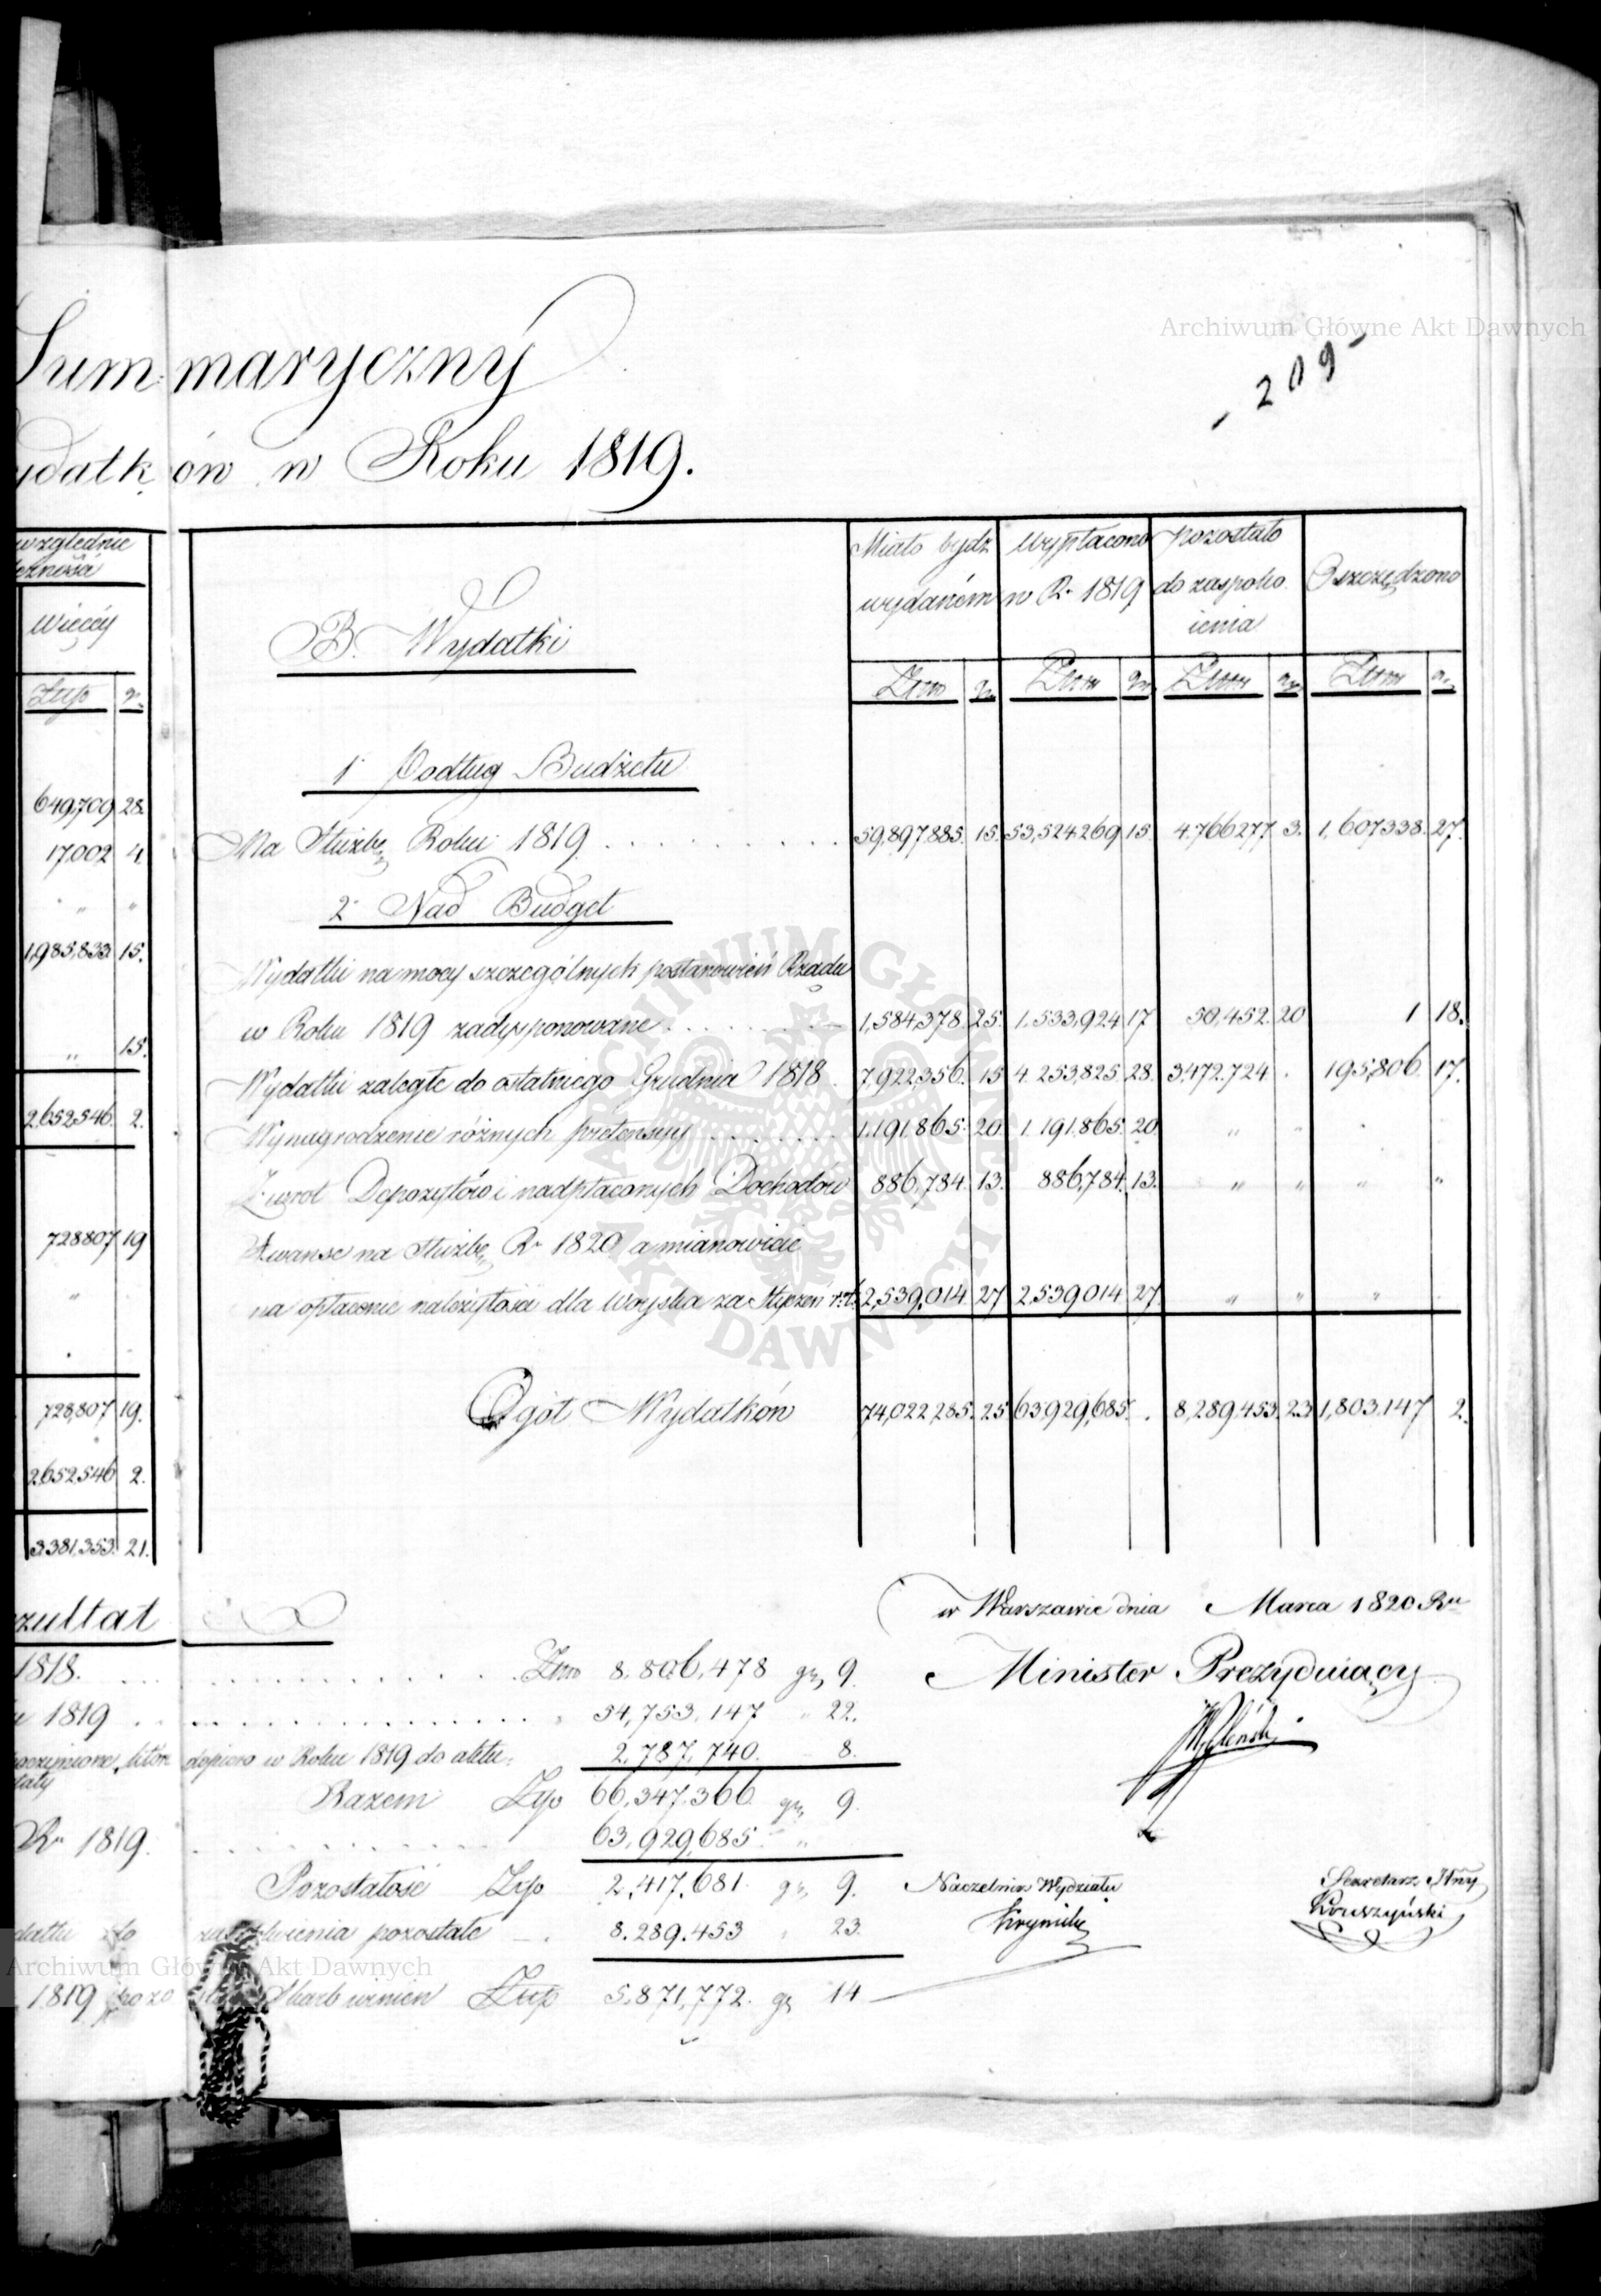 Archiwum Główne Akt Dawnych
- 209 -
Summaryczny
ydatków w Roku 1819.
względnie
więcéy
Złtp gr.
649,709 28.
17,002 4.
" "
1,985,833. 15.
" 15.
2,652,546. 2.
728,807 19
"
728,807 19.
2,652,546 2.
3,381,353. 21.
B. Wydatki
Miało bydź wydaném
Wypłacono w R. 1819
Pozostało do zaspoko ienia
Oszczędzono
1. Podług Budżetu
Na Służbę Roku 1819 59,897,885. 15. 53,524,269 15. 4,766,277 3. 1,607,338. 27.
2. Nad Budget
Wydatki na mocy szczególnych postanowień Rządu
w Roku 1819 zadysponowane 1,584,378. 25. 1,533,924 17 50,452. 20 1 18.
Wydatki zaległe do ostatniego Grudnia 1818 7,922,356. 15 4,253,825. 28. 3,472,724 . 195,806. 17.
Wynagrodzenie różnych pretensyy 1,191,865. 20 1,191,865. 20. " "
Zwrot Depozytów i nadpłaconych Dochodów 886,784. 13. 886,784. 13. " " " "
Awanse na Służbę R. 1820 a mianowicie
na opłacenie należytości dla Woyska za Styczeń r.b. 2,539,014 27 2,539,014 27. " " "
Ogół Wydatków 74,022,285. 25 63,929,685. . 8,289,453. 23 1,803,147 2.
w Warszawie dnia Marca 1820 Ru
zultat
1818. Złtp 8,806,478 gr, 9.
u 1819 54,753,147 " 22.
dopiero w Roku 1819 do aktu 2,787,740. 8.
Razem Złp 66,347,366. gr, 9.
Ru 1819. 63,929,685. "
Pozostałość Złp 2,417,681. gr, 9.
datku do zaspokoienia pozostałe 8,289,453 23.
1819 Skarb winien Złtp 5,871,772. gr 14
Minister Prezyduiący
Naczelnik Wydziału
Sekretarz Jlny
Kruszyński
Archiwum Główne Akt Dawnych
ARCHIWUM GŁÓWNE AKT DAWNYCH